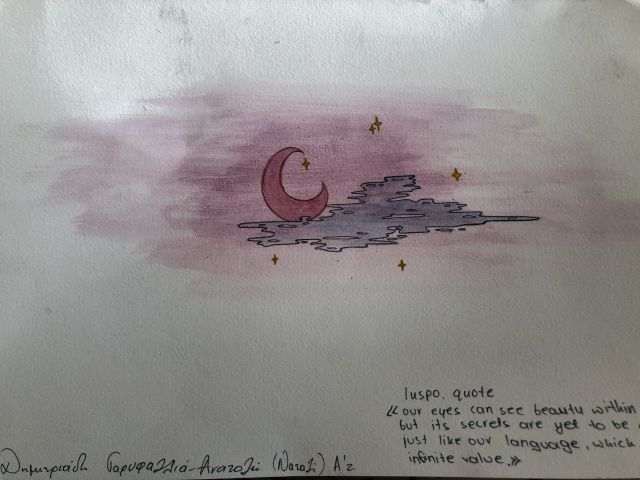 Iuspo. quote
«our eyes can see beauty within
but its secrets are yet to be
just like our language, which
infinite value.»
Δημητριάδη Γαρυφαλλιά-Ανατολή (Ναταλί) Α'2